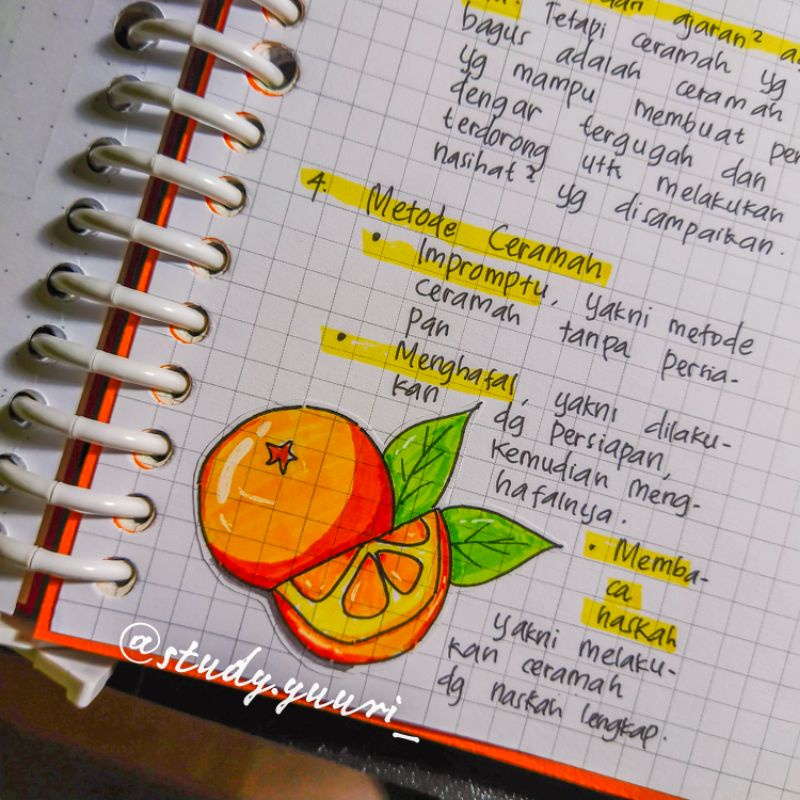 ajaran² a
Tetapi ceramah yg
bagus adalah ceramah
yg mampu membuat pen
dengar tergugah dan
terdorong utk melakukan
nasihat² yg disampaikan.
4. Metode Ceramah
• Impromptu, yakni metode
ceramah tanpa persia-
pan
• Menghafal, yakni dilaku-
kan dg persiapan,
kemudian meng-
hafalnya.
• Memba-
ca
naskah
yakni melaku-
kan ceramah
dg naskah lengkap.
@study.yuuri_